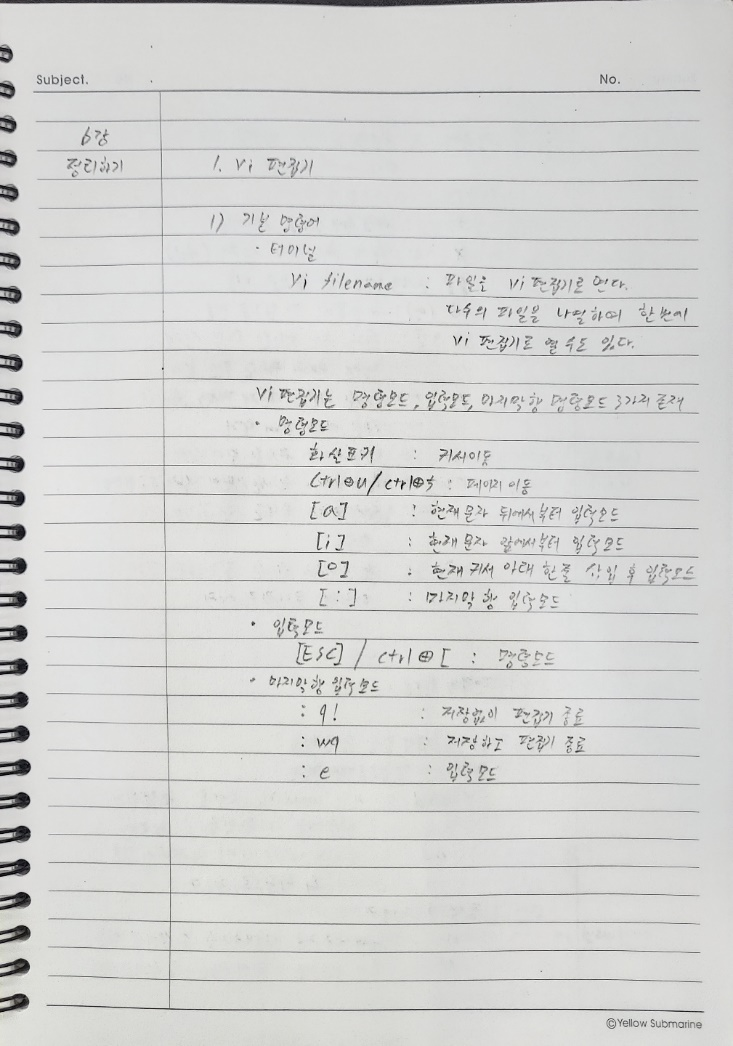 Subject.
No.
6강
정리하기
1. Vi 편집기
1) 기본 명령어
· 터미널
Vi filename : 파일을 Vi 편집기로 연다.
다수의 파일을 나열하여 한번에
Vi 편집기로 열 수도 있다.
Vi 편집기는 명령모드, 입력모드, 마지막행 명령모드 3가지 존재
· 명령모드
화살표키 : 커서이동
Ctrl⊕u/ctrl⊕f : 페이지 이동
[a] : 현재 문자 뒤에서부터 입력모드
[i] : 현재 문자 앞에서부터 입력모드
[o] : 현재 커서 아래 한줄 삽입 후 입력모드
[:] : 마지막 행 입력모드
· 입력모드
[ESC] / ctrl⊕[ : 명령모드
· 마지막행 입력모드
: q! : 저장없이 편집기 종료
: wq : 저장하고 편집기 종료
: e : 입력모드
©Yellow Submarine